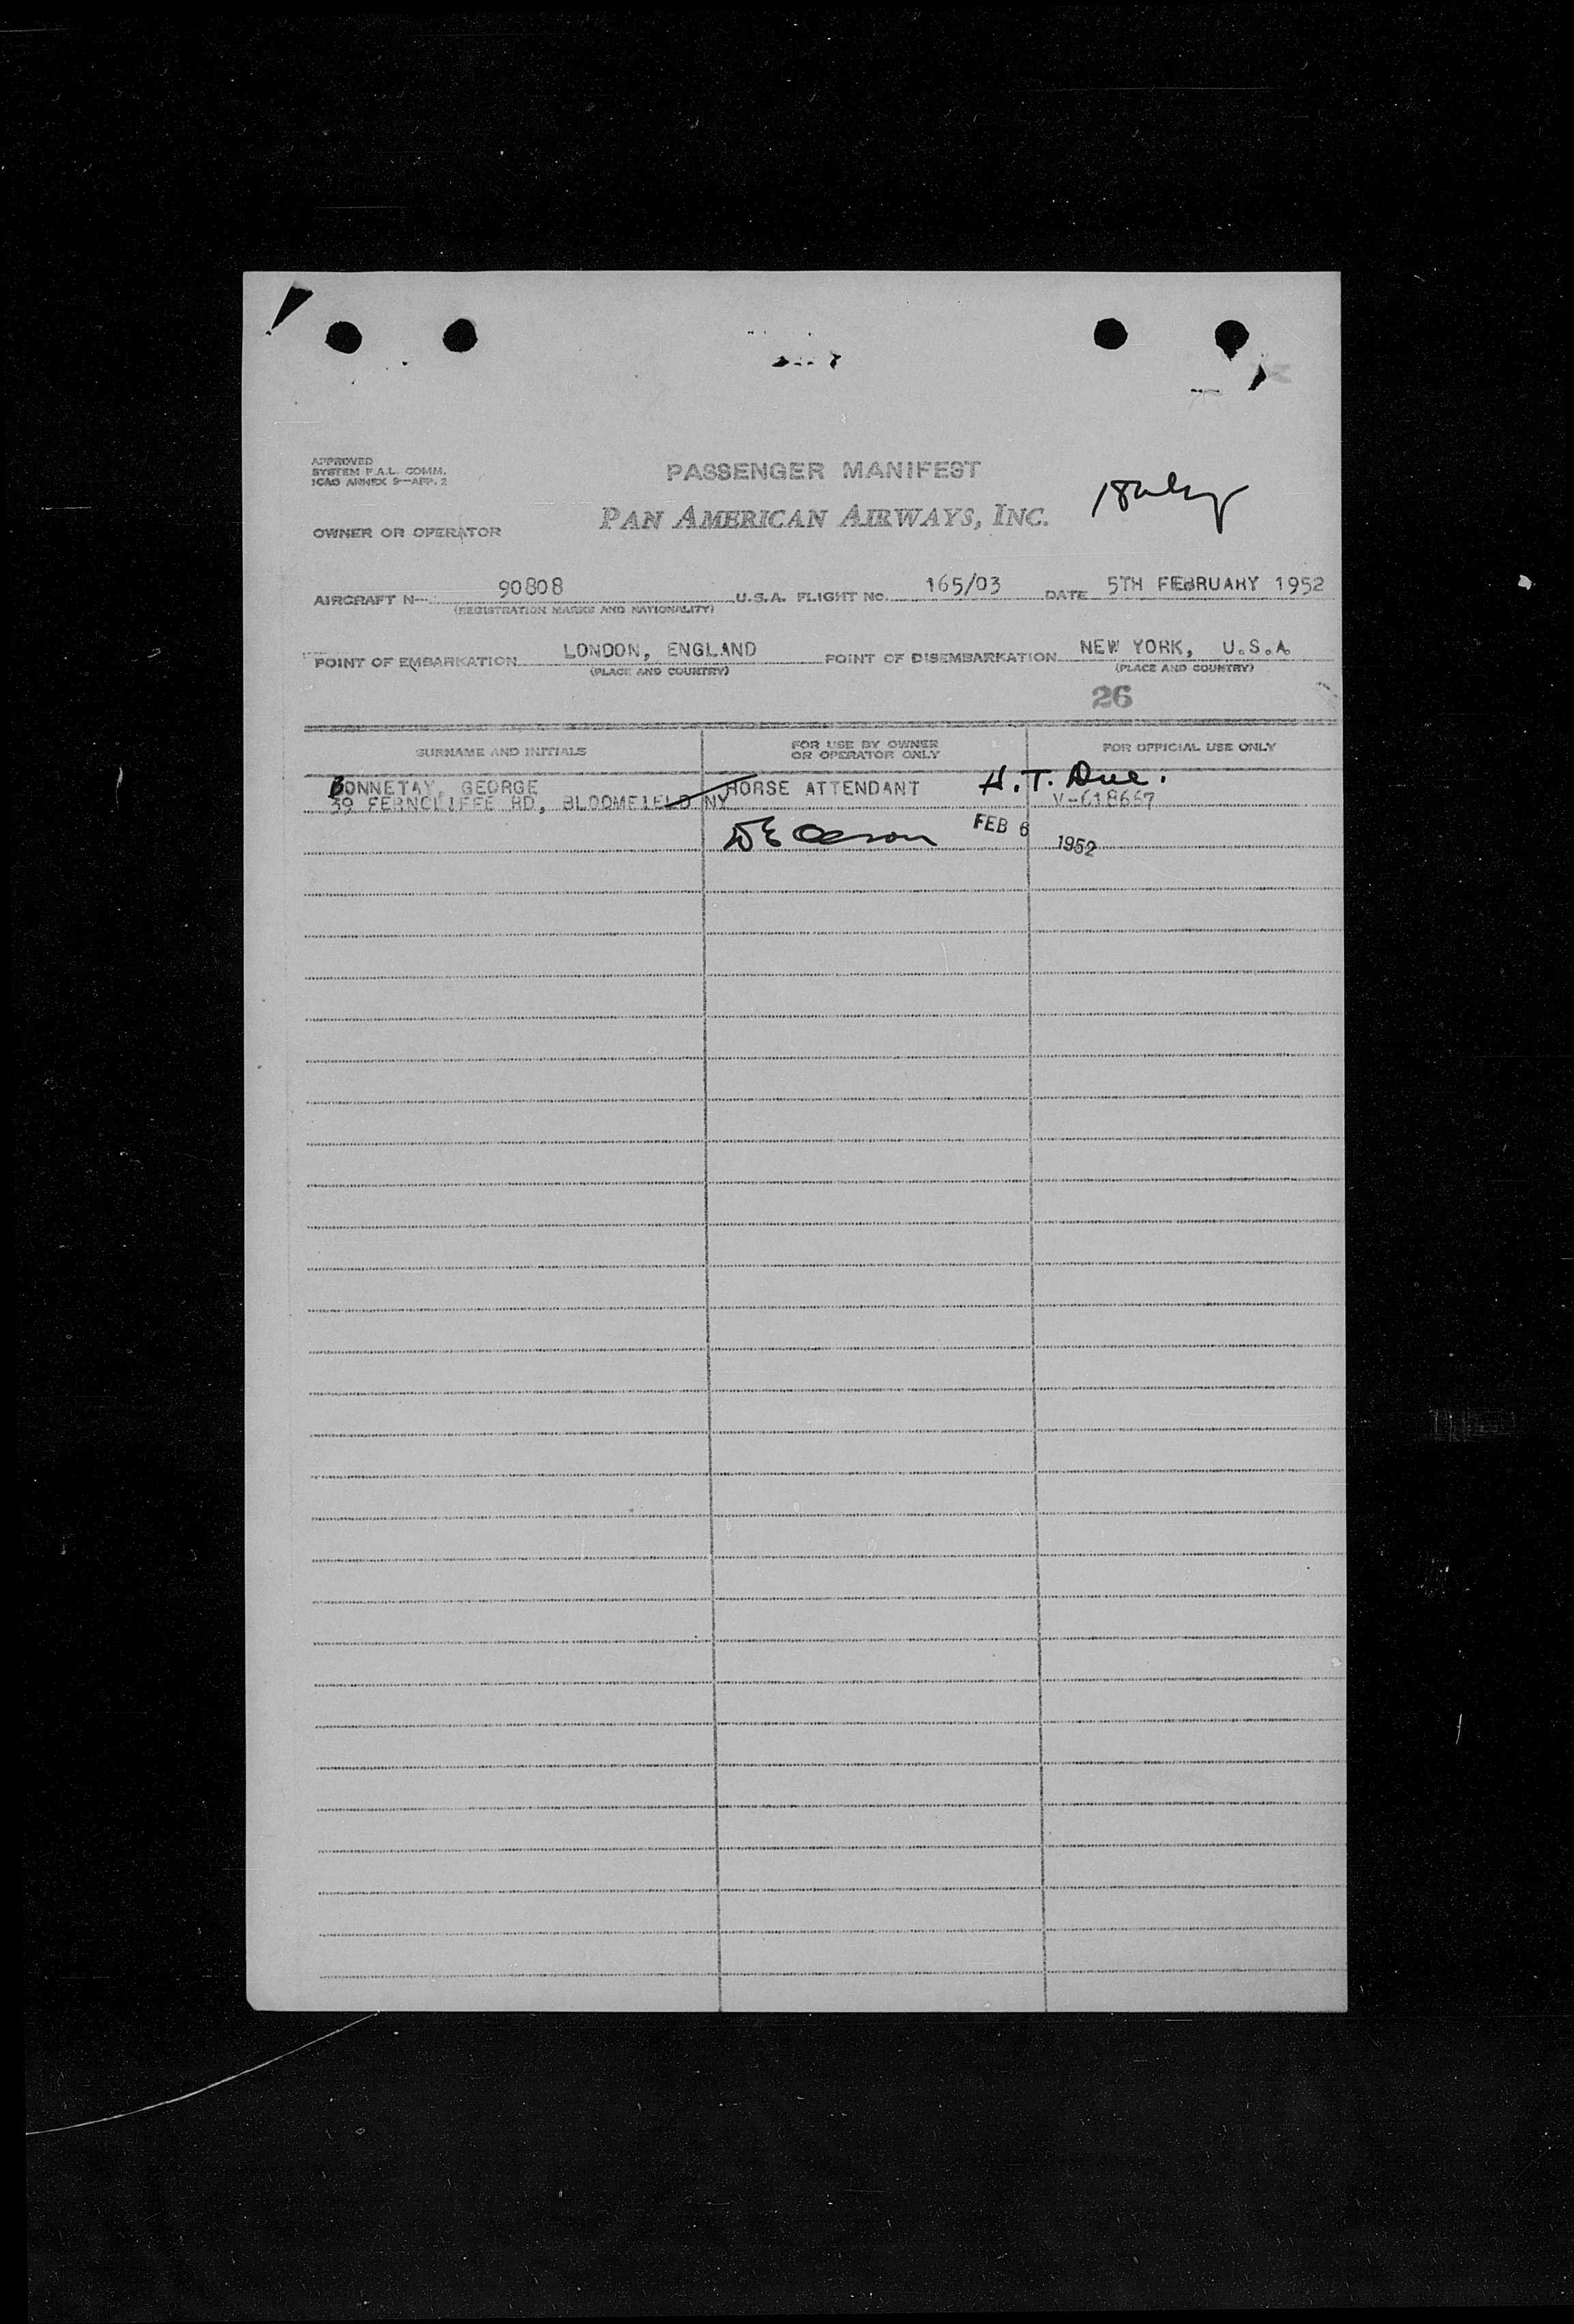 APPROVED
SYSTEM F.A.L. COMM.
ICAO ANNEX 9—APP. 2
PASSENGER MANIFEST
PAN AMERICAN AIRWAYS, INC.
OWNER OR OPERATOR
AIRCRAFT N— 90808 U.S.A. FLIGHT No. 165/03 DATE 5TH FEBRUARY 1952
(REGISTRATION MARKS AND NATIONALITY)
POINT OF EMBARKATION LONDON, ENGLAND POINT OF DISEMBARKATION NEW YORK, U.S.A.
(PLACE AND COUNTRY) (PLACE AND COUNTRY)
26
SURNAME AND INITIALS FOR USE BY OWNER OR OPERATOR ONLY FOR OFFICIAL USE ONLY
BONNETAY, GEORGE HORSE ATTENDANT H.T. Due.
39 FERNCLIFFE RD, BLOOMFIELD NY V-618667
FEB 6 1952